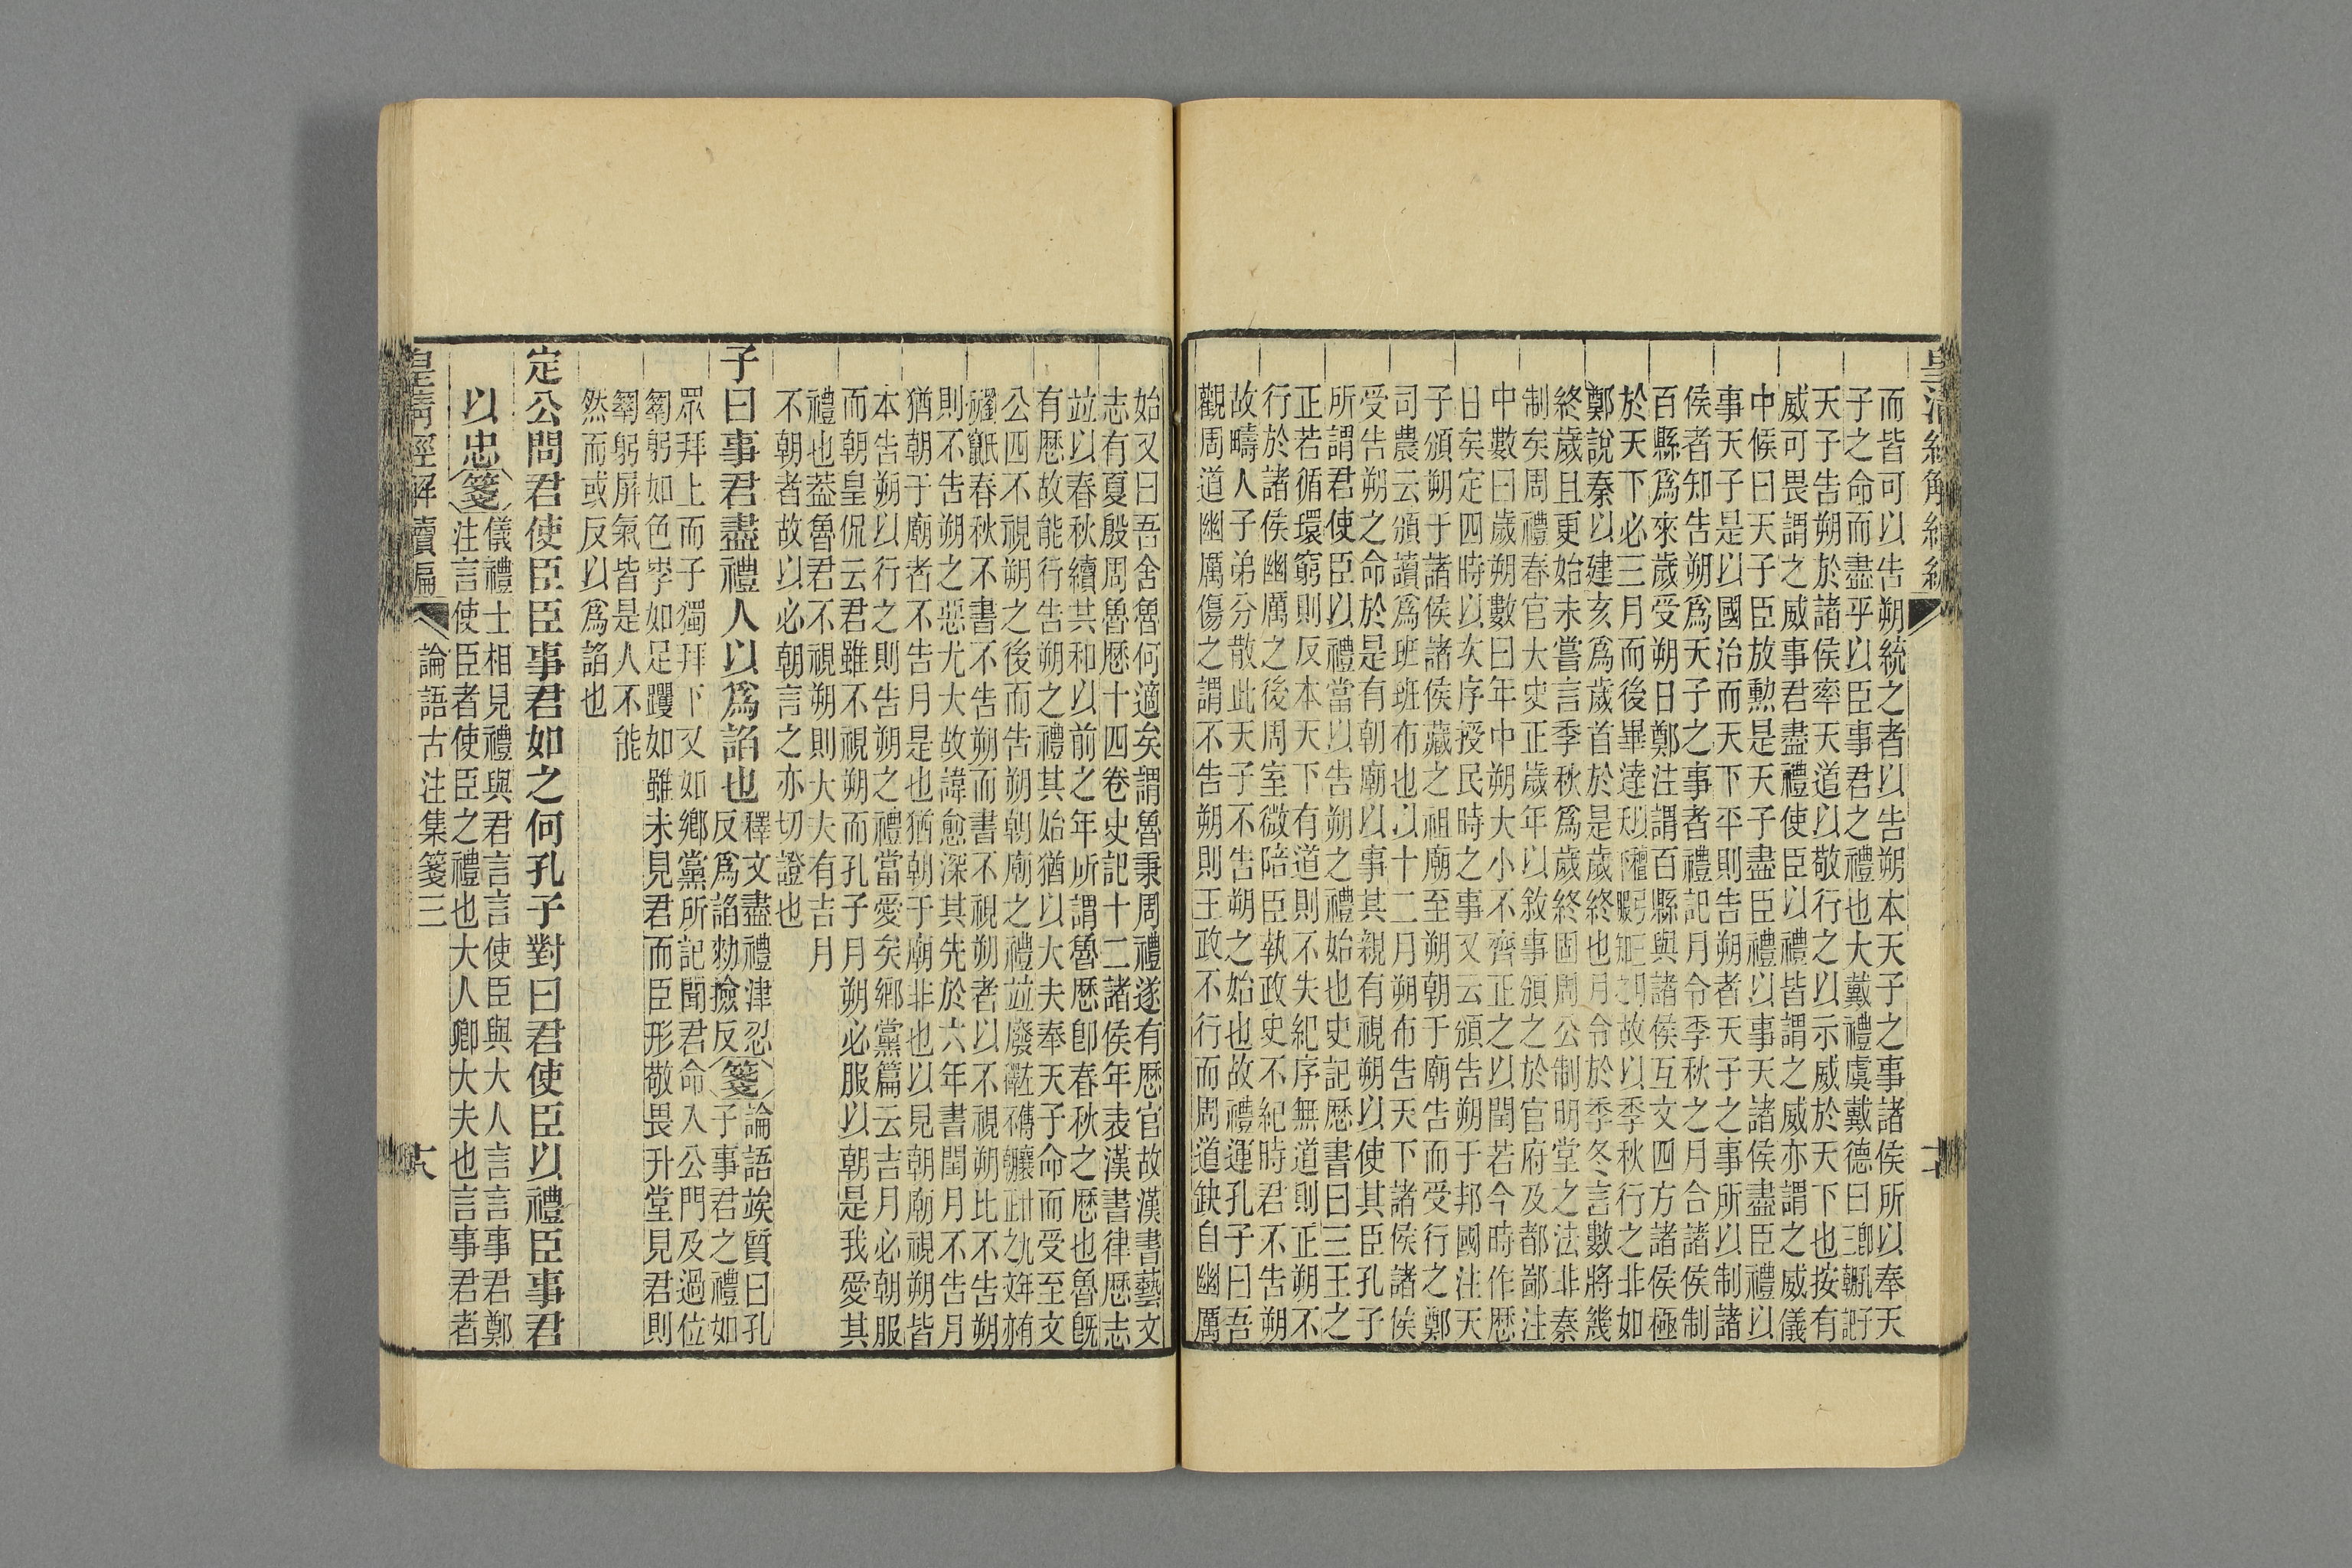 而皆可以告朔統之者以告朔本天子之事諸侯所以奉天
子之命而盡乎以臣事君之禮也大戴禮虞戴德曰
天子告朔於諸侯率天道以敬行之以示威於天下也按有
威可畏謂之威事君盡禮使臣以禮皆謂之威亦謂之威儀
中候曰天子臣放勲是天子盡臣禮以事天諸侯盡臣禮以
事天子是以國治而天下平則告朔者天子之事所以制諸
侯者知告朔爲天子之事者禮記月令季秋之月合諸侯制
百縣爲來歲受朔日鄭注謂百縣與諸侯互文四方諸侯極
於天下必三月而後畢達故以季秋行之非如
鄭說秦以建亥爲歲首於是歲終也月令於季冬言數將幾
終歲且更始未嘗言季秋爲歲終固周公制明堂之法非秦
制矣周禮春官大史正歲年以敘事頒之於官府及都鄙注
中數曰歲朔數曰年中朔大小不齊正之以閏若今時作歴
日矣定四時以次序授民時之事又云頒告朔于邦國注天
子頒朔于諸侯諸侯藏之祖廟至朔朝于廟告而受行之鄭
司農云頒讀爲班班布也以十二月朔布告天下諸侯諸侯
受告朔之命於是有朝廟以事其親有視朔以使其臣孔子
所謂君使臣以禮當以告朔之禮始也史記歴書曰三王之
正若循環窮則反本天下有道則不失紀序無道則正朔不
行於諸侯幽厲之後周室微陪臣執政史不紀時君不告朔
故疇人子弟分散此天子不告朔之始也故禮運孔子曰吾
觀周道幽厲傷之謂不告朔則王政不行而周道缺自幽厲
始又曰吾舍魯何適矣謂魯秉周禮遂有歴官故漢書藝文
志有夏殷周魯歴十四卷史記十二諸侯年表漢書律歴志
竝以春秋續共和以前之年所謂魯歴卽春秋之歴也魯旣
有歴故能行告朔之禮其始猶以大夫奉天子命而受至文
公四不視朔之後而告朔朝廟之禮竝廢
春秋不書不告朔而書不視朔者以不視朔比不告朔
則不告朔之惡尤大故諱愈深其先於六年書閏月不告月
猶朝于廟者不告月是也猶朝于廟非也以見朝廟視朔皆
本告朔以行之則告朔之禮當愛矣鄉黨篇云吉月必朝服
而朝皇侃云君雖不視朔而孔子月朔必服以朝是我愛其
禮也葢魯君不視朔則大夫有吉月
不朝者故以必朝言之亦切證也
子曰事君盡禮人以爲諂也釋文盡禮津忍
反爲諂勑撿反箋論語竢質曰孔
子事君之禮如
眾拜上而子獨拜下又如鄉黨所記聞君命入公門及過位
匑躬如色孛如足躩如雖未見君而臣形敬畏升堂見君則
匑躬屏氣皆是人不能
然而或反以爲諂也
定公問君使臣臣事君如之何孔子對曰君使臣以禮臣事君
以忠箋儀禮士相見禮與君言言使臣與大人言言事君鄭
注言使臣者使臣之禮也大人卿大夫也言事君者
皇清經解續編
論語古注集箋三